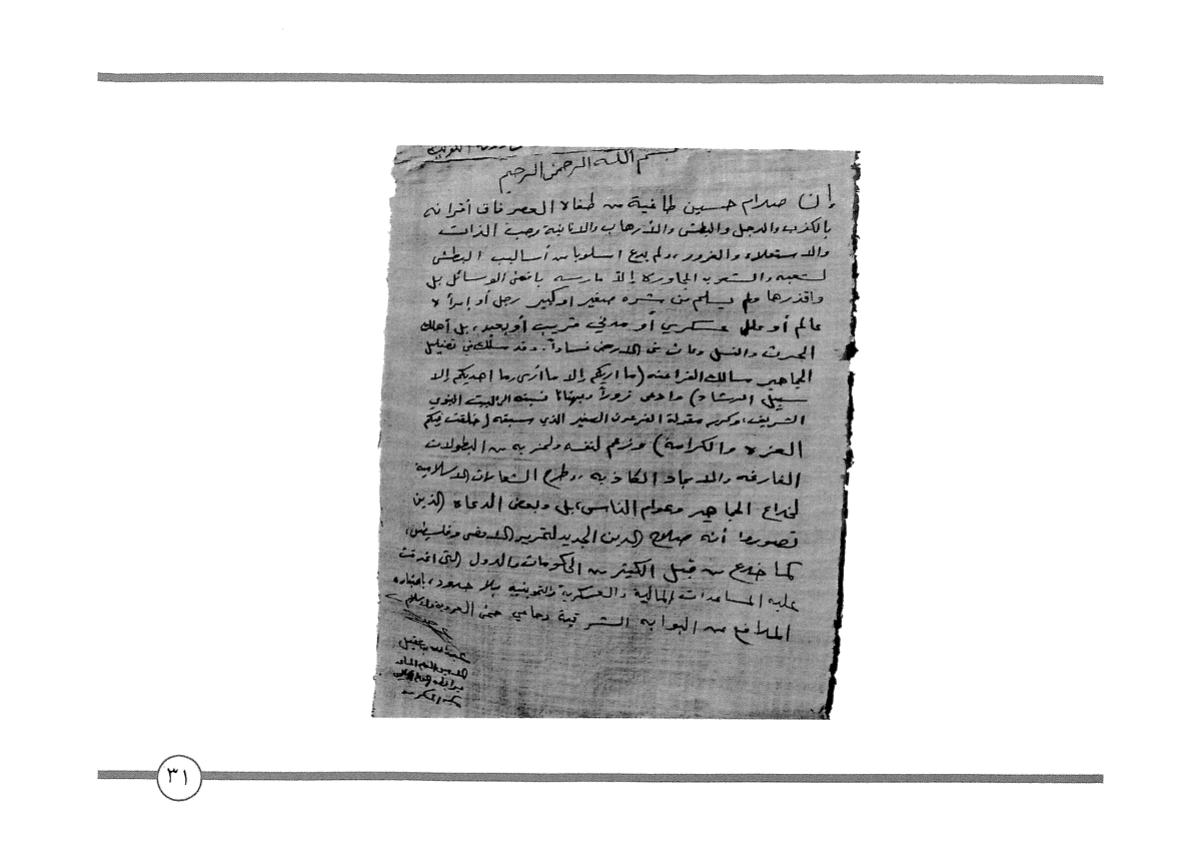 بسم الله الرحمن الرحيم
إن صدام حسين طاغية من طغاة العصر فاق أقرانه
بالكذب والدجل والبطش والأرهاب والأنانية وحب الذات
والاستعلاء والغرور، ولم يدع اسلوبا من أساليب البطش
لشعبه والشعوب المجاورة إلا مارسه بافظع الوسائل بل
واقذرها ولم يسلم من شره صغير او كبير رجل أو إمرأة
عالم أو عامل عسكري أو مدني قريب أو بعيد، بل أهلك
الحرث والنسل وعاث في الارض فساداً. وقد سلك في تضليل
الجماهير مسالك الفراعنه (ما اريكم إلا ما أرى وما اهديكم إلا
سبيل الرشاد) وادعى زوراً وبهتانا نسبته الى البيت النبوي
الشريف، وكرر مقولة الفرعون الصغير الذي سبقه (خلقت فيكم
العزة والكرامة) وزعم لنفسه ولحزبه من البطولات
الفارغه والامجاد الكاذبه .. وطرح الشعارات الاسلامية
لخداع الجماهير وعوام الناس، بل وبعض الدعاة الذين
تصوروا أنه صلاح الدين الجديد لتحرير الاقصى وفلسطين،
كما خدع من قبل الكثير من الحكومات والدول التي اغدقت
عليه المساعدات المالية والعسكرية والتموينيه بلا حدود، باعتباره
المدافع عن البوابه الشرقية وحامي حمى العروبة
عبدالله
مكة المكرمة
٣١